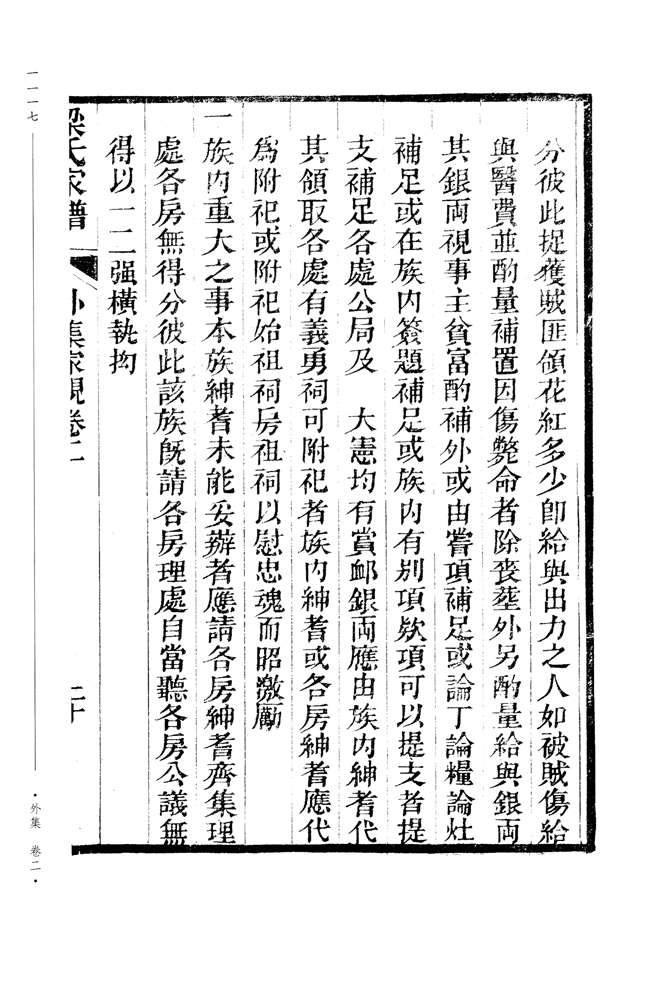 分彼此捉獲賊匪領花紅多少卽給與出力之人如被賊傷給
與醫費並酌量補置因傷斃命者除喪塟外另酌量給與銀両
其銀両視事主貧富酌補外或由嘗項補足或論丁論糧論灶
補足或在族內簽題補足或族內有别項欵項可以提支者提
支補足各處公局及　大憲均有賞卹銀両應由族內紳耆代
其領取各處有義勇祠可附祀者族內紳耆或各房紳耆應代
爲附祀或附祀始祖祠房祖祠以慰忠魂而昭激勵
一族內重大之事本族紳耆未能妥辦者應請各房紳耆齊集理
處各房無得分彼此該族旣請各房理處自當聽各房公議無
得以一二强橫執拘
梁氏家譜　外集家規卷二　二十
一一一七
·外集　卷二·